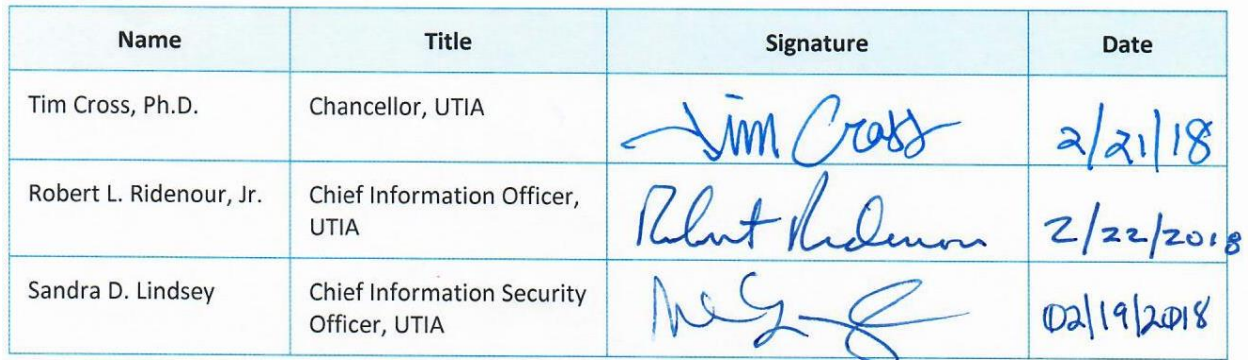 Name Title Signature Date
Tim Cross, Ph.D. Chancellor, UTIA Tim Cross 2/21/18
Robert L. Ridenour, Jr. Chief Information Officer, Robert Ridenour 2/22/2018
UTIA
Sandra D. Lindsey Chief Information Security 02/19/2018
Officer, UTIA